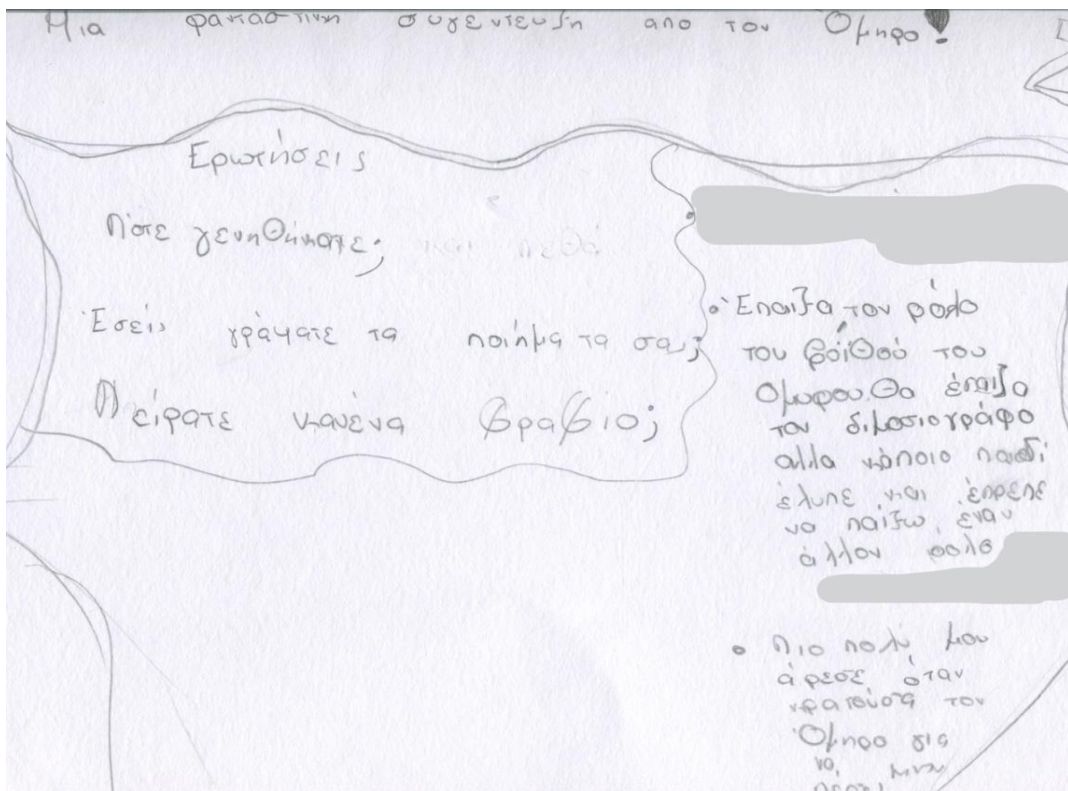 Μια φανταστικη συγεντευξη απο τον Όμηρο!
Ερωτήσεις
Πότε γενηθήκατε; και πεθά
Έσείς γράψατε τα ποιήματα σας;
Πείρατε κανένα βραβίο;
• Έπαιξα τον ρόλο
του βοϊθού του
Ομυρου. Θα έπαιζα
τον διμοσιογράφο
αλλα κάποιο παιδί
έλυπε και έπρεπε
να παίξω έναν
άλλον ρολο
• Πιο πολύ μου
άρεσε όταν
κρατούσα τον
Όμηρο για
να μην
πέσει